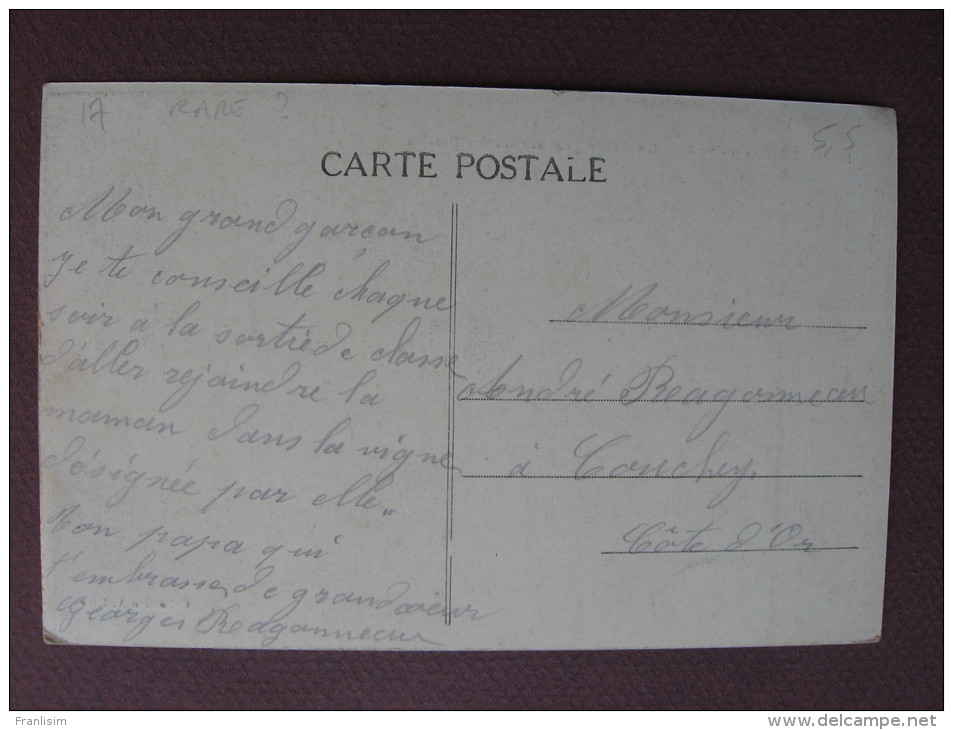 17 RARE ?
5,5
CARTE POSTALE
Mon grand garçon
Je te conseille chaque
soir à la sortie de classe
d'aller rejoindre la
maman dans la vigne
désignée par elle..
Ton papa qui
t'embrasse de grand coeur
Georges Ragonneau
Monsieur
André Ragonneau
à Couchey.
Côte d'Or
Franlisim
www.delcampe.net